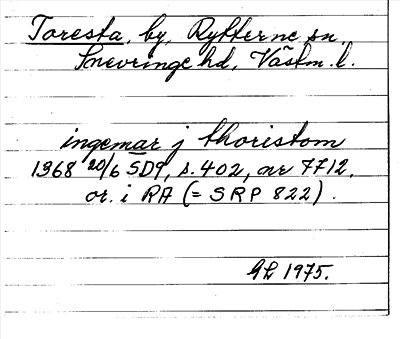 Toresta, by, Rytterne sn,
Snevringe hd, Västm. l.
ingemar j thoristom
1368 20/6 SD9, s. 402, nr 7712,
or. i RA (= SRP 822).
GL 1975.